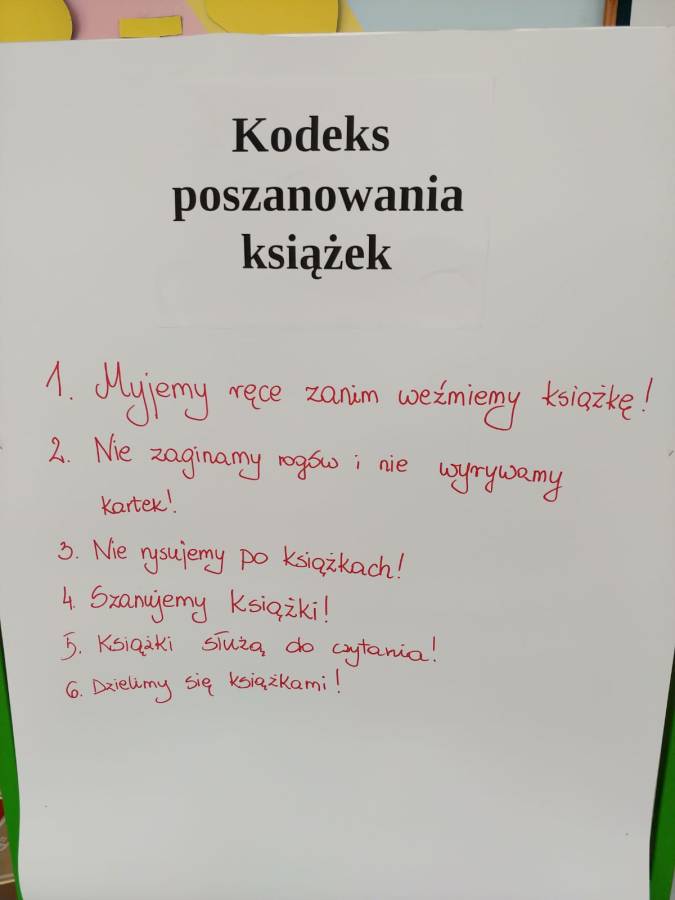 Kodeks
poszanowania
książek
1. Myjemy ręce zanim weźmiemy książkę!
2. Nie zaginamy rogów i nie wyrywamy
kartek!
3. Nie rysujemy po książkach!
4. Szanujemy książki!
5. Książki służą do czytania!
6. Dzielimy się książkami!